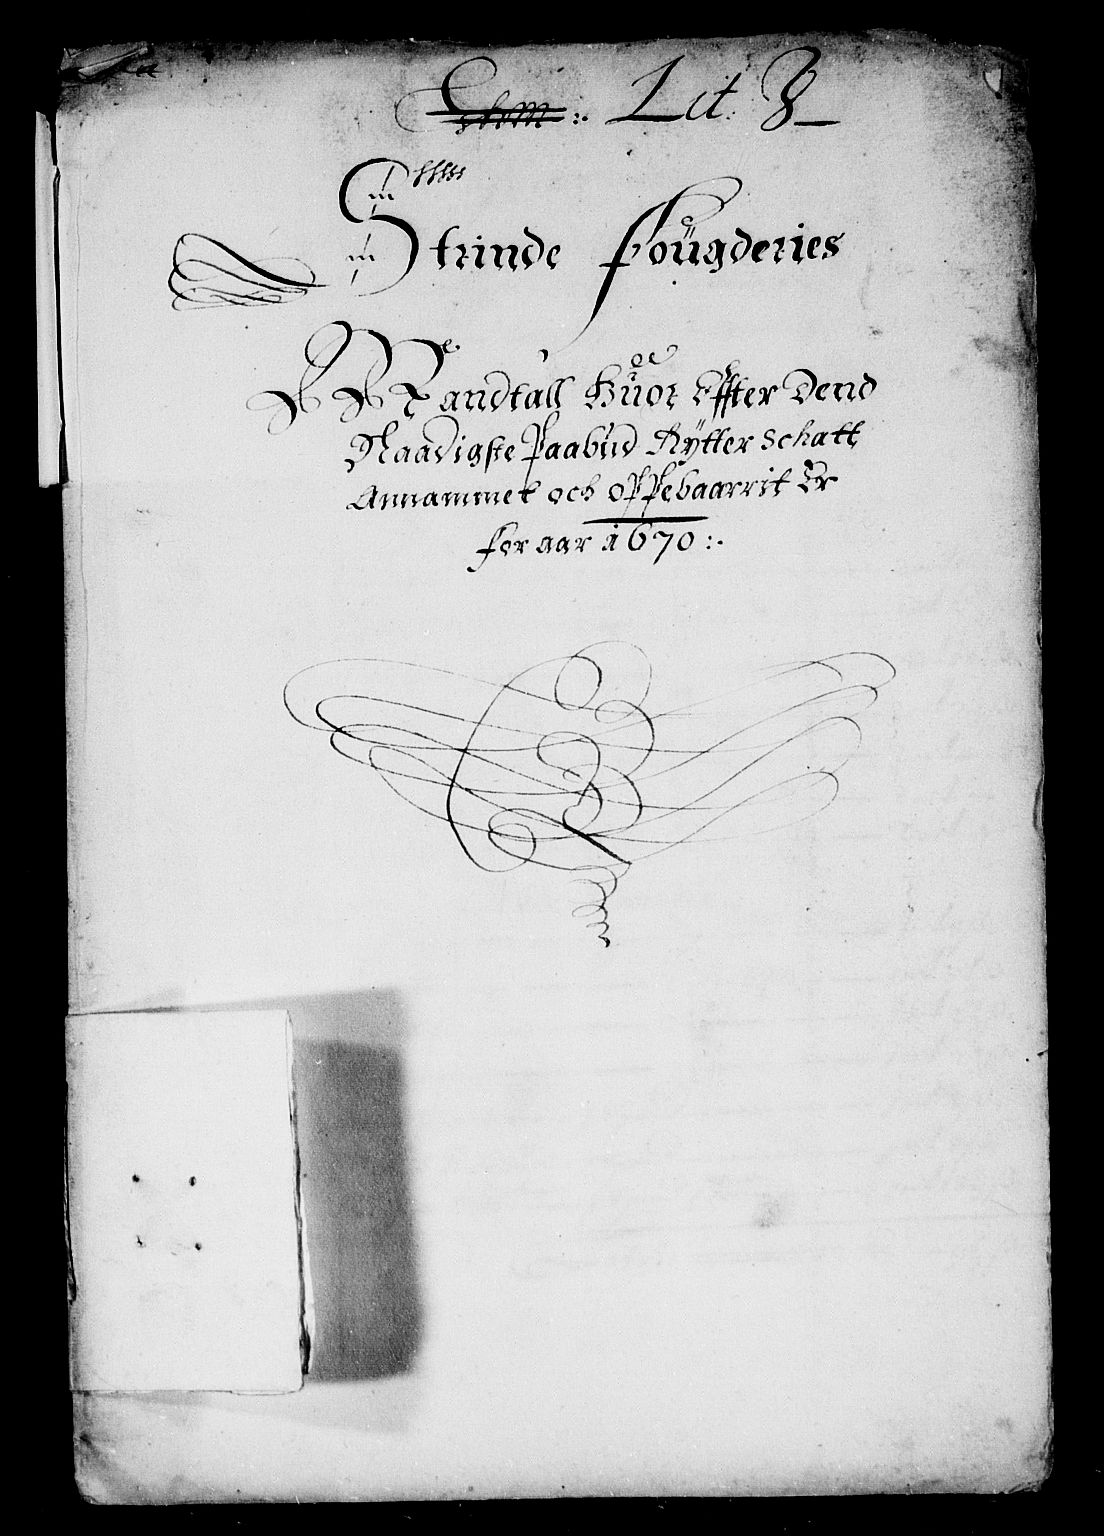 Lit. B
Strinde fougderies
Mandtall Huor Effter Dend
Naadigste Paabud Rytter schatt
Annammet och oppebaarrit Er
for aar 1670 :.